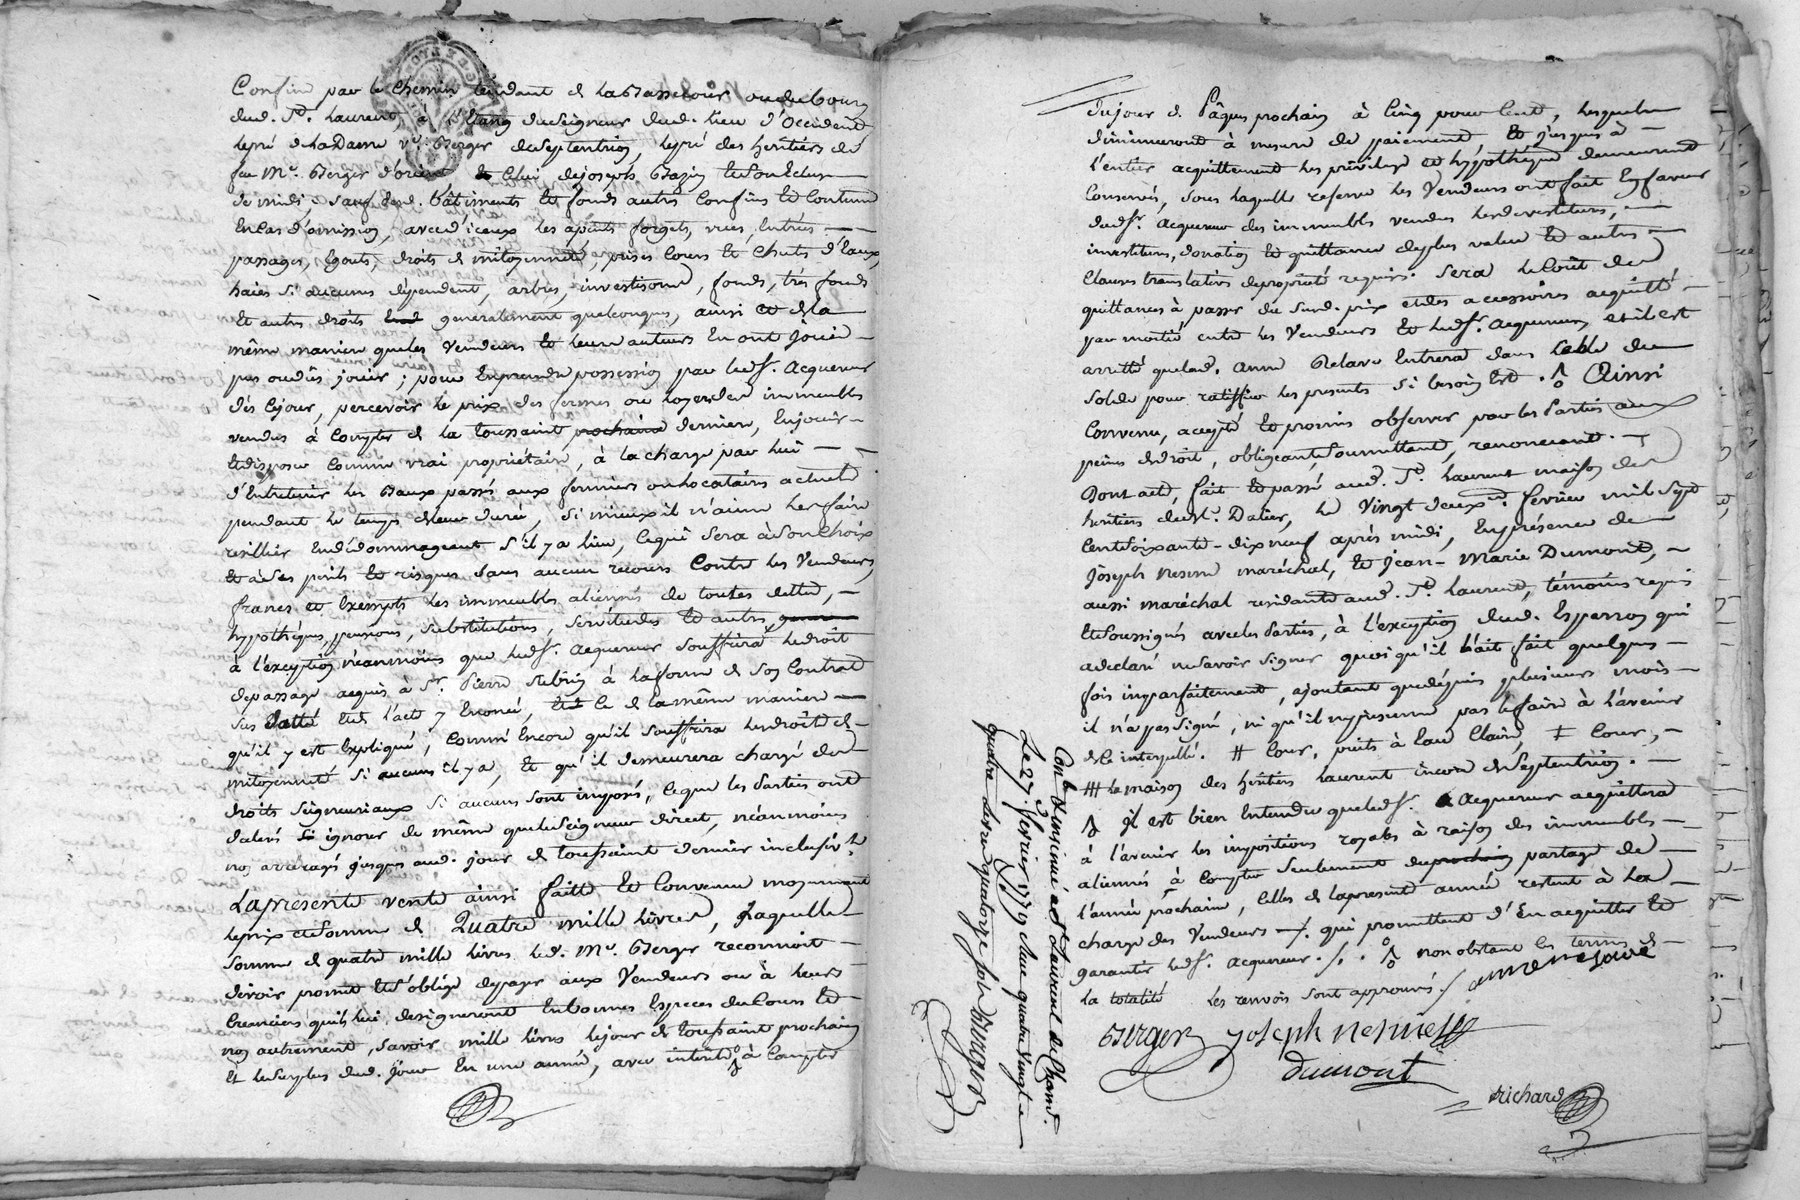 Confiné par le chemin tendant de la Bassecour au du bourg
dud. St. Laurent, à l'Etang du Seigneur dud. lieu d'Occident
le pré de la Dame ve. Berger de Septentrion, le pré des heritiers de
feu Me. Berger d'orient et Celui de joseph Bazin
de midi, Sauf desd. bâtiments et fonds autres Confins et Contenu
En Cas d'omission, avec d'iceux les aparts forgets, vues, Entrées
passages, Egouts, droits de mitoyenneté, prises Cours et Chute d'Eaux,
haies Si aucunes dépendent, arbres, investisons, fonds, très fonds
Et autres droits generalement quelconques, ainsi et de la
même maniere que les Vendeurs et leurs auteurs En ont joui
pu ou dû jouir ; pour En prendre possession par led. Sr. Acquereur
dès ce jour, percevoir le prix des fermes ou loyers des immeubles
vendus à Compter de la toussaint prochaine dernier, En jouir
Et disposer Comme vrai propriétaire, à la charge par lui
d'Entretenir les Baux passés aux fermiers ou locataires actuels
pendant le temps de leur durée, Si mieux il n'aime les faire
resillier En dédommageant S'il y a lieu, Ce qui Sera à Son Choix
Et à Ses perils et risques Sans aucun recours Contre les Vendeurs,
francs et Exempts les immeubles aliennés de toutes dettes,
hypothéques, pensions, Substitutions, Servitudes et autres
à l'exception néanmoins que led. Sr. acquereur Souffrira le droit
de passage acquis à Sr. Pierre à la forme de Son Contrat
Sus datté Et de l'acte y Enoncé, Et Ce de la même maniere
qu'il y est Expliqué, Comme Encore qu'il Souffrira les droits de
mitoyenneté Si aucuns il y a, Et qu'il demeurera chargé des
droits Seigneuriaux Si aucuns Sont imposés, Ce que les Parties ont
declaré ignorer de même que le Seigneur direct, néanmoins
non arréragés jusques aud. jour de toussaint dernier inclusivt.
La présente vente ainsi faitte Et Convenue moyennant
le prix et Somme de Quatre mille livres, Laquelle
Somme de quatre mille livres led. Me. Berger reconnoit
devoir promet Et S'oblige de payer aux Vendeurs ou à leurs
Creanciers qu'ils lui designeront En bonnes Especes du Cours Et
non autrement, Savoir mille livres le jour de toussaint prochain
Et le Surplus dud. jour En une année, avec interêts à Compter
du jour de Pâques prochain à Cinq pour Cent, lesquels
diminueront à mesure de paiement Et jusques à
l'entier acquittement les privilege et hypothéque demeurent
Conservés, Sous laquelle reserve les Vendeurs ont fait En faveur
dud. Sr. Acquereur des immeubles vendus les devestitures,
investitures, donation Et quittance de plus value Et autres
Clauses translatives de proprieté requises. Sera le Coût des
quittances à passer du Susd. prix et des accessoires acquitté
par moitié entre les Vendeurs Et led. Sr. Acquereur, et il est
arrêté que lad. Anne Delave Entrera dans
Solde pour ratiffier les presents Si besoin Est. Ainsi
Convenu, accepté Et promis observer par les Parties aux
peines de droit, obligeant, Soumettant, renonceant.
Dont acte, fait Et passé aud. St. Laurent maison des
heritiers de Sr. Dalier, le Vingt deux février mil Sept
Cent Soixante-dix neuf après midi, En présence de
Joseph Nesme maréchal, Et Jean-Marie Dumont,
aussi maréchal residants aud. St. Laurent, témoins requis
Et Soussignés avec les Parties, à l'exception dud. Esperron qui
a declaré ne Savoir Signer quoiqu'il l'ait fait quelques
fois imparfaitement, ajoutant que depuis plusieurs mois
il n'a pas Signé, ni qu'il n'y pas le faire à l'avenir
de Ce interpellé. # Cour, puits à Eau Claire, ‡ Cour,
⧻ la maison des heritiers Laurent encore de Septentrion.
Il est bien Entendu que led. Sr. Acquereur acquittera
à l'avenir les impositions royales à raison des immeubles
aliennés à Compter Seulement du prochain partage de
l'année prochaine, Celles de la présente année restent à la
charge des Vendeurs qui promettent d'En acquitter Et
garantir led. Sr. Acquereur. non obstant les termes de
la totalité les renvois Sont approuvés
Berger joseph nesme
dumont
Richard
Conlé. Et insinué à St. Laurent de Chamt.
Le 27. février 1779 Reçu quatre vingt
quatre livres quatorze sols Berger